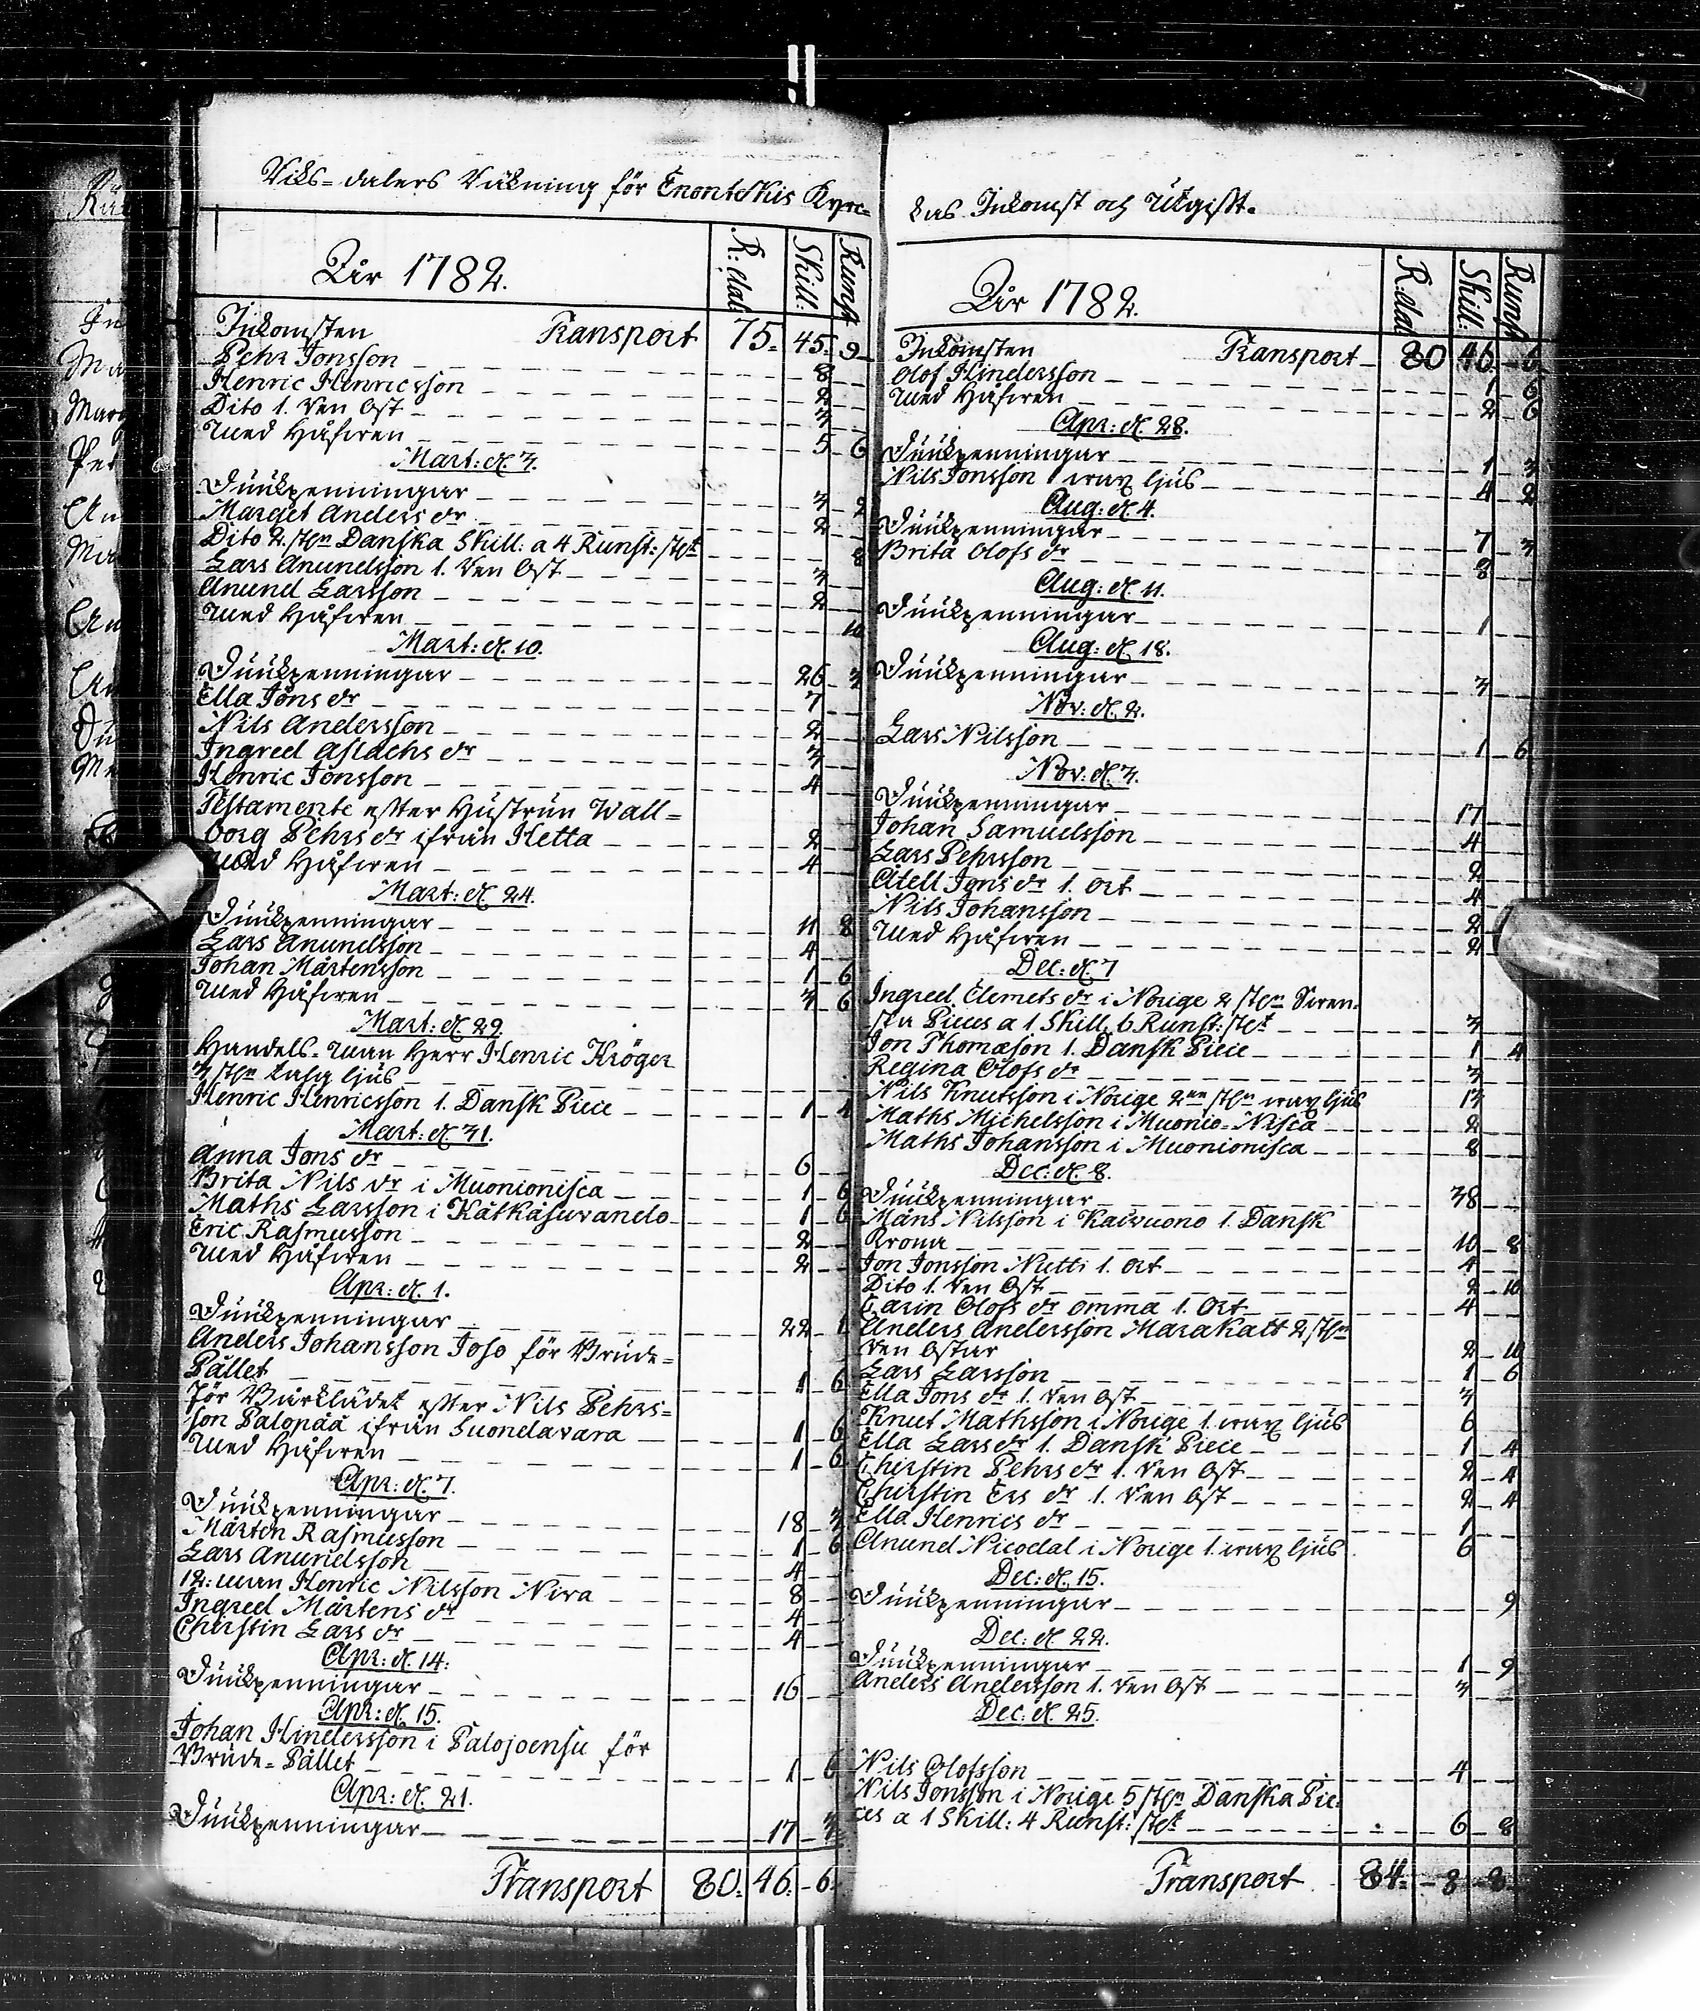 Riks-dalers Räkning för Enontekis Kyrc-
År 1782. R:dal: Skill: Runst
Inkomsten Transport 75. 45. 9
Pehr Jonsson 8
Henric Henricsson 2
Dito 1. Ren Ost 3
Med Håfwen 5 6
Mart: d. 3.
Diuukpenningar 3 2
Marget Anders dr 2
Dito 2. st:n Danska Skill: a 4 Runst: st:t 8
Lars Anundsson 1. Ren Ost 3
Anund Larsson 2
Med Håfwen 10
Mart: d. 10.
Diuukpenningar 26 3
Ella Jöns dr 7
Nils Andersson 2
Ingred Aslachs dr 3
Henric Jonsson 4
Testamente efter Hustrun Wall=
borg Pehrs dr ifrån Hetta 2
Med Håfwen 4
Mart: d. 24.
Diuukpenningar 11 8
Lars Anundsson 4
Johan Mårtensson 1 6
Med Håfwen 3 6
Mart: d. 29.
Handels-Man Herr Henric Kröger
3 st:n talg ljus
Henric Henricsson 1. Dansk Piece 1 4
Mart: d. 31.
Anna Jons dr 6
Brita Nils dr i Muonionisca 1 6
Maths Larsson i Kätkäsuvando 1 6
Eric Rasmusson 2
Med Håfwen 2
Apr: d. 1.
Diuukpenningar 22 1
Anders Johansson Joso för Brude=
Pället 1 6
För Bårklädet efter Nils Pehrs=
son Palopää ifrån Suondavara 1 6
Med Håfwen 1 6
Apr: d. 7.
Diuukpenningar 18 3
Mårten Rasmusson 1 6
Lars Anundsson 4
12:man Henric Nilsson Niva 8
Ingred Mårtens dr 4
Christin Lars dr 4
Apr: d. 14:
Diuukpenningar 16
Apr: d. 15.
Johan Hindersson i Palojoensu för
Brude=Pället 1 6
Apr: d. 21.
Diuukpenningar 17 3
Transport 80. 46. 6.
kas Inkomst och Utgift.
År 1782. R:dal Skill: Runst
Inkomsten Transport 80 46 6
Olof Hindersson 1 6
Med Håfwen 2 6
Apr: d. 28.
Diuukpenningar 1 3
Nils Jonsson 1 wax ljus 4 2
Aug: d. 4.
Diuukpenningar 7 3
Brita Olofs dr 8
Aug: d. 11.
Diuukpenningar 1
Aug: d. 18.
Diuukpenningar 3
Nov: d. 2.
Lars Nilsson 1 6
Nov: d. 3.
Diuukpenningar 17
Johan Samuelsson 4
Lars Pehrsson 2
Atell Jons dr 1. Ort 4
Nils Johansson 2
Med Håfwen 2
Dec: d. 7
Ingred Clemets dr i Norige 2 st:n Swen-
ska Pieces a 1 Skill. 6 Runst: st:t 3
Jon Thomæson 1. Dansk Piece 1 4
Regina Olofs dr 3
Nils Knutsson i Norige 2ne st:n wax ljus 13
Maths Michelsson i Muonio-Nisca 2
Maths Johansson i Muonionisca 8
Dec: d. 8.
Diuukpenningar 38
Måns Nilsson i Kaivuono 1. Dansk
Krona 10 8
Jon Jonsson Nutti 1. Ort 4
Dito 1. Ren Ost 2 10
Carin Olofs dr Omma 1. Ort 4
Anders Andersson Marakatt 2 st:n
Ren Ostar 2 10
Lars Larsson 1 6
Ella Jons dr 1. Ren Ost 3
Knut Mathsson i Norige 1. wax ljus 6
Ella Lars dr 1. Dansk Piece 1 4
Christin Pehrs dr 1. Ren Ost 2 4
Christin Ers dr 1. Ren Ost 2 4
Ella Henrics dr 1
Anund Nicodal i Norige 1. wax ljus 6
Dec: d. 15.
Diuukpenningar 9
Dec: d. 22.
Diuukpenningar 1 9
Anders Andersson 1. Ren Ost 3
Dec: d. 25.
Nils Olofsson 4
Nils Jonsson i Norige 5 st:n Danska Pie-
ces a 1 Skill: 4 Runst: st:t 6 8
Transport 84. 8 8